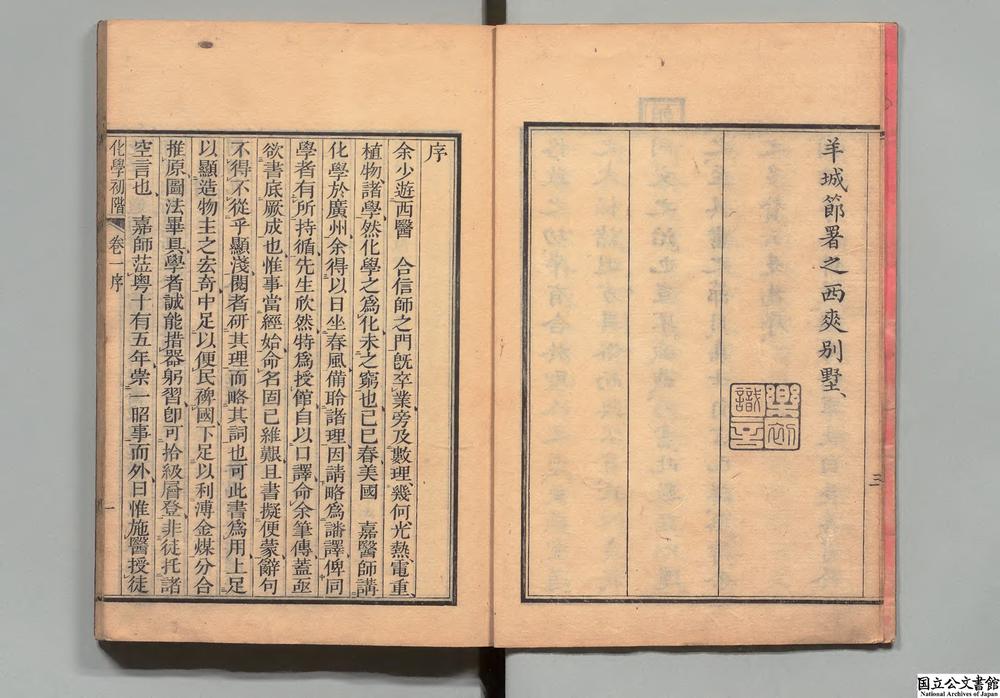 羊城節署之西爽別墅、
三
序
余少遊西醫　合信師之門旣卒業旁及數理幾何光熱電重、
植物諸學然化學之爲化未之窮也己巳春美國　嘉醫師講
化學於廣州余得以日坐春風備聆諸理因請略爲譒譯俾同
學者有所持循先生欣然特爲授館自以口譯命余筆傳蓋亟
欲書底厥成也惟事當經始命名固已維艱且書擬便蒙辭句
不得不從乎顯淺閱者硏其理而略其詞也可此書爲用上足
以顯造物主之宏奇中足以便民裨國下足以利溥金煤分合
推原圖法畢具學者誠能措器躬習卽可拾級層登非徒托諸
空言也　嘉師蒞粵十有五年祟一昭事而外日惟施醫授徒
化學初階
卷一序
一
国立公文書館
National Archives of Japan